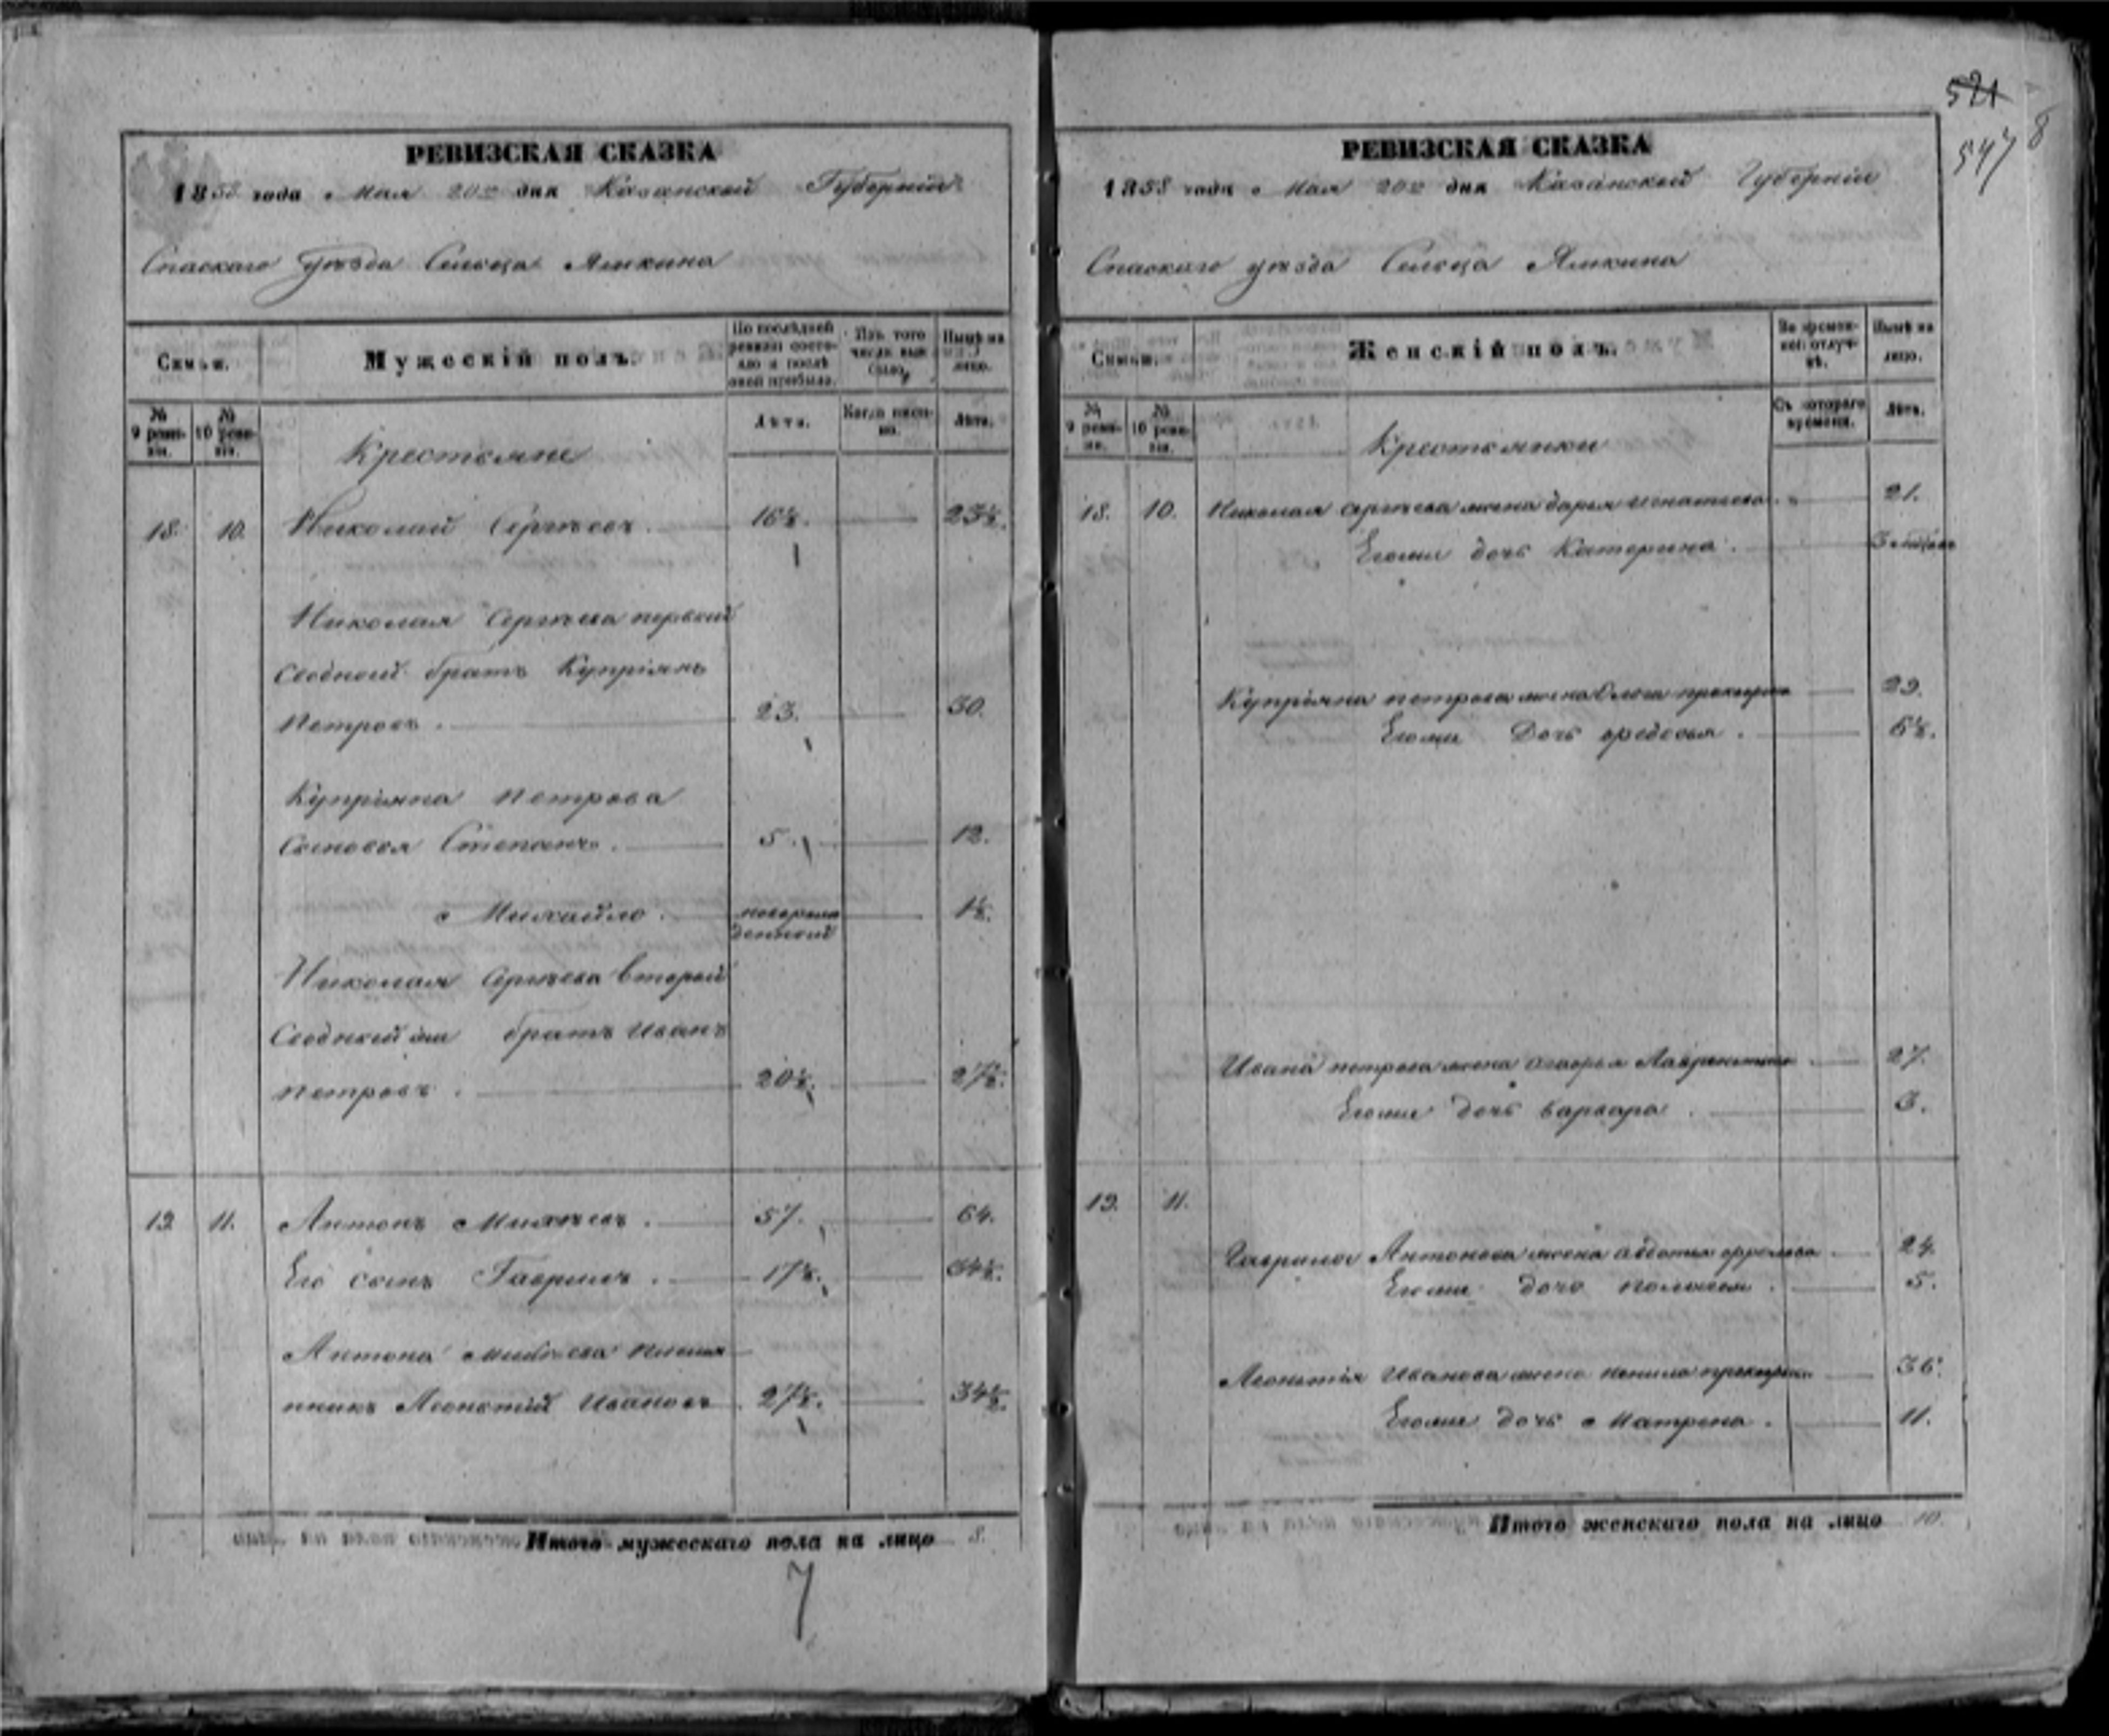 РЕВИЗСКАЯ СКАЗКА
1858 года Мая 20го дня Казанской Губернии
Спаскаго уѣзда Сельца Ямкина
Семьи.
Мужескій полъ.
По послѣдней ревизіи состояло и послѣ оной прибыло.
Изъ того числа выбыло.
Нынѣ на лицо.
№ 9 ревизіи.
№ 10 ревизіи.
Лѣта.
Когда именно.
Лѣта.
Крестьяне
18. 10. Николай Сергѣевъ. 16½. 23½.
Николая Сергѣева первой
Сводной братъ Купріянъ
Петровъ. 23. 30.
Купріяна Петрова
Сыновья Степанъ. 5. 12.
Михайло. новорож
денной 1½.
Николая Сергѣева второй
Сводной же братъ Иванъ
Петровъ. 20½. 27½.
19 11. Антонъ Михѣевъ. 57. 64.
Его сынъ Гаврилъ. 17½.
Антона Михѣева племя
нникъ Леонтій Ивановъ 27½. 34½.
Итого мужескаго пола на лицо 8.
7
521
547
8
РЕВИЗСКАЯ СКАЗКА
1858 года Мая 20го дня Казанской Губерніи
Спаскаго уѣзда Сельца Ямкина
Семьи.
Женскій полъ.
Во временной отлучкѣ.
Нынѣ на лицо.
№ 9 ревизіи.
№ 10 ревизіи.
Съ котораго времени.
Лѣта.
Крестьянки
18. 10. Николая Сергѣева жена дарья игнатьева. 21.
Егоже дочь Катерина. 3
Купріяна петрова жена 29.
Егоже Дочь федосья. 6½.
Ивана петрова жена 27.
Егоже дочь варвара. 3.
19. 11.
Гаврилы Антонова жена авдотья 24.
Егоже дочь 5.
Леонтія Иванова жена 36.
Егоже дочь Матрена. 11.
Итого женскаго пола на лицо 10.